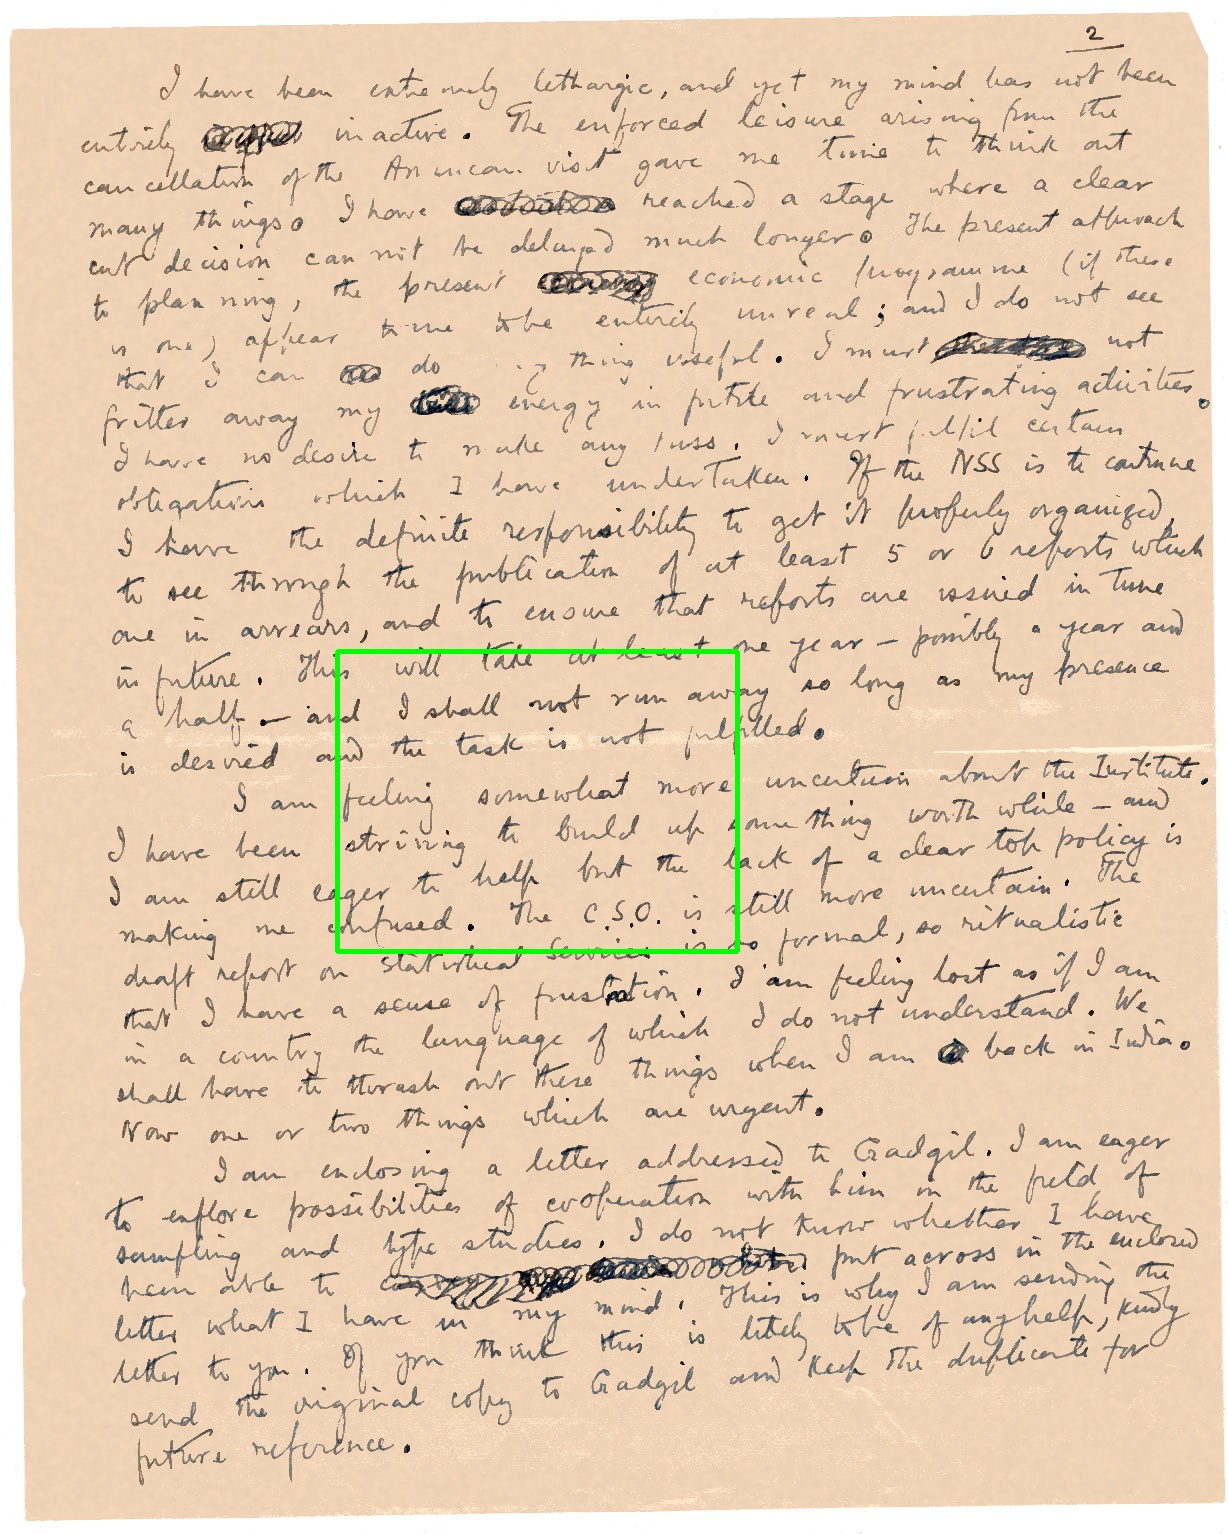 2
I have been extremely lethargic, and yet my mind has not been
entirely inactive. The enforced leisure arising from the
cancellation of the American visit gave me time to think out
many things. I have reached a stage where a clear
cut decision can not be delayed much longer. The present approach
to planning, the present economic programme (if there
is one) appear to me to be entirely unreal; and I do not see
that I can do thing useful. I must not
fritter away my energy in futile and frustrating activities.
I have no desire to make any fuss. I must fulfil certain
obligations which I have undertaken. If the NSS is to continue
I have the definite responsibility to get it properly organized,
to see through the publication of at least 5 or 6 reports which
are in arrears, and to ensure that reports are issued in time
in future. This will take at least one year – possibly a year and
a half – and I shall not run away so long as my presence
is desired and the task is not fulfilled.
I am feeling somewhat more uncertain about the Institute.
I have been striving to build up something worth while – and
I am still eager to help but the lack of a clear top policy is
making me confused. The C.S.O. is still more uncertain. The
draft report on statistical Services is so formal, so ritualistic
that I have a sense of frustation. I am feeling lost as if I am
in a country the language of which I do not understand. We
shall have to thrash out these things when I am back in India.
Now one or two things which are urgent.
I am enclosing a letter addressed to Gadgil. I am eager
to explore possibilities of cooperation with him in the field of
sampling and type studies. I do not know whether I have
been able to put across in the enclosed
letter what I have in my mind. This is why I am sending the
letter to you. If you think this is likely to be of any help, kindly
send the original copy to Gadgil and keep the duplicate for
future reference.